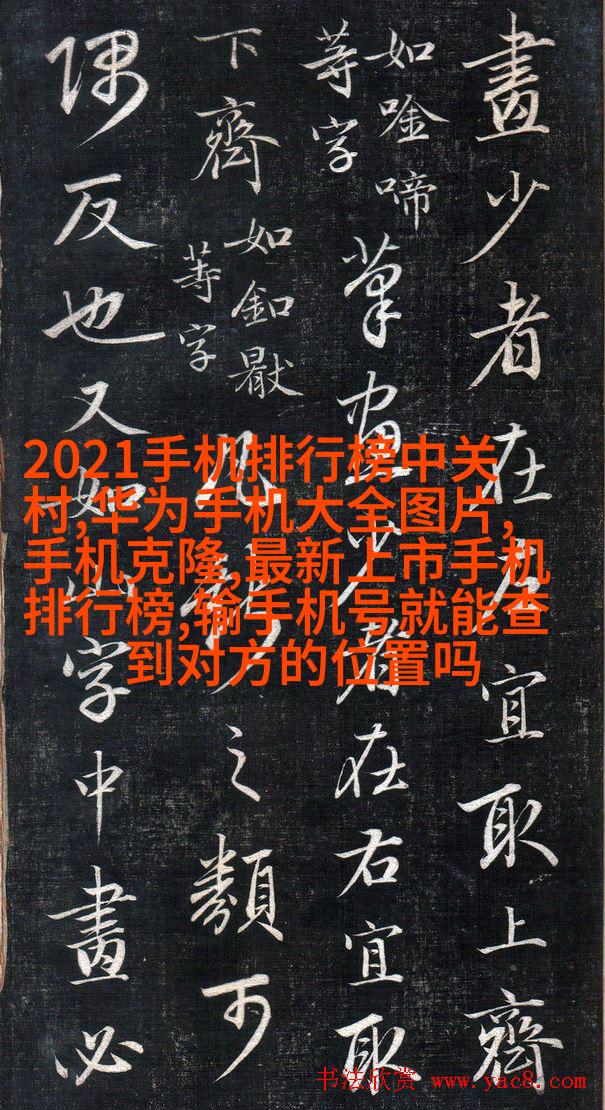 畫少者在左宜取上齊
如唫啼
等字
筆畫少者在右宜取
下齊
如釦
等字
凡
之類可
隅反也又如山字中畫必
2021手机排行榜中关
村,华为手机大全图片,
手机克隆,最新上市手机
排行榜,输手机号就能查
到对方的位置吗
书法欣赏 www.yac8.com